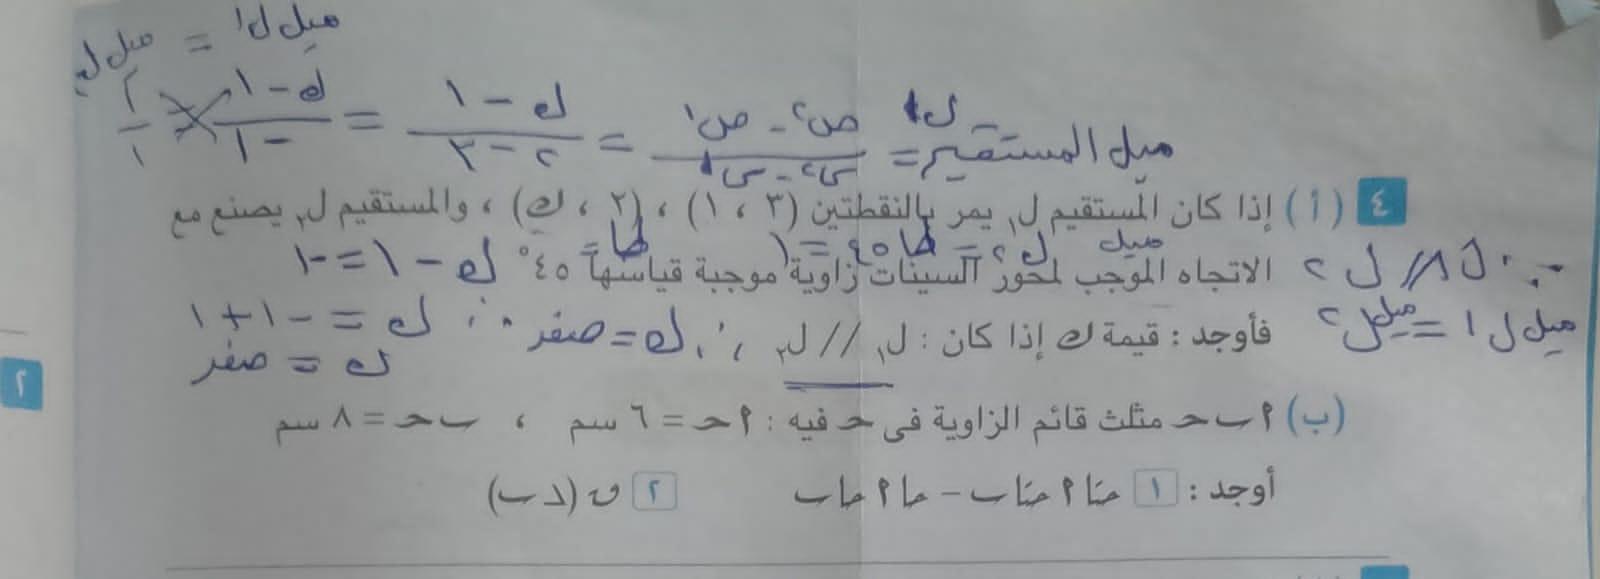 ميل ل١ = ميل ل٢
ميل المستقيم ل١ = ص٢ - ص١ / س٢ - س١ = ك - ١ / ٢ - ٣ = ك - ١ / -١ = ١ / ١
٤ (أ) إذا كان المستقيم ل١ يمر بالنقطتين (٣ ، ١) ، (٢ ، ك) ، والمستقيم ل٢ يصنع مع
ميل ل٢ = ظا ٤٥ = ١
الاتجاه الموجب لمحور السينات زاوية موجبة قياسها ٤٥°
∵ ل١ // ل٢
ميل ل١ = ميل ل٢
ك - ١ = -١
فأوجد : قيمة ك إذا كان : ل١ // ل٢
∴ ك = صفر
∴ ك = -١ + ١
ك = صفر
٢
(ب) ا ب ح مثلث قائم الزاوية فى ح فيه : ا ح = ٦ سم ، ب ح = ٨ سم
أوجد : ١ حتا ا حتا ب - حا ا حا ب ٢ ق (د ب)